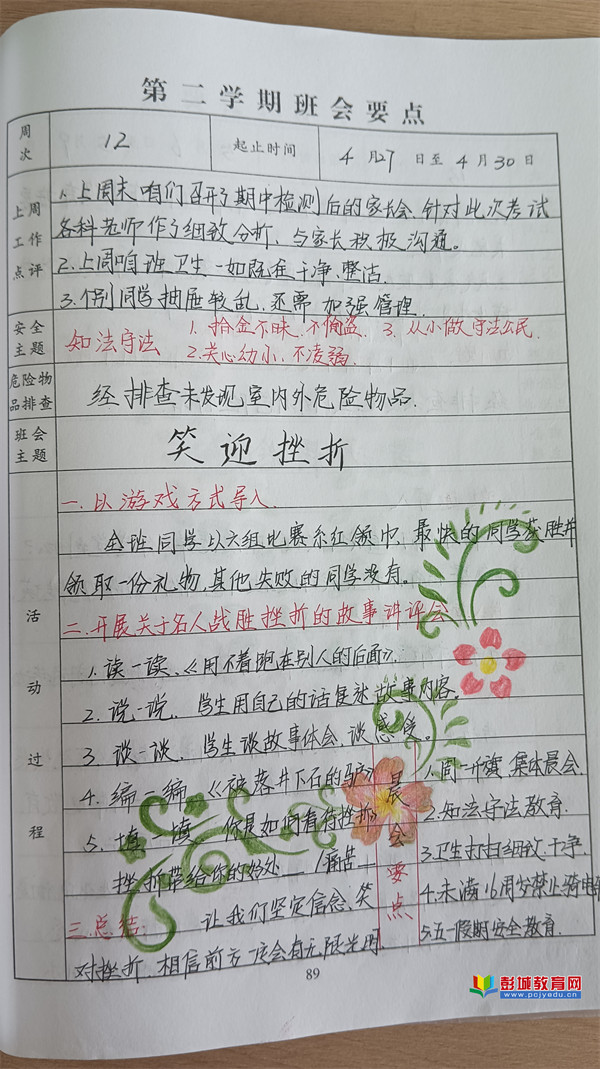 第二学期班会要点
周次 12 起止时间 4月27日至4月30日
上周工作点评
1.上周末咱们召开了期中检测后的家长会.针对此次考试
各科老师作了细致分析,与家长积极沟通。
2.上周咱班卫生一如既往干净整洁.
3.个别同学抽屉较乱,还需加强管理.
安全主题 知法守法 1.拾金不昧.不偷盗. 3.从小做守法公民.
2.关心幼小,不凌弱.
危险物品排查 经排查未发现室内外危险物品.
班会主题 笑迎挫折
活动过程
一.以游戏方式导入.
全班同学以六组比赛系红领巾,最快的同学获胜并
领取一份礼物,其他失败的同学没有。
二.开展关于名人战胜挫折的故事讲评会
1.读一读.《用不着跑在别人的后面》.
2.说一说.学生用自己的话复述故事内容.
3.谈一谈.学生谈故事体会,谈感受。
4.编一编《被落井下石的驴》
5.填一填 你是如何看待挫折
挫折带给你的好处 / 痛苦
三.总结: 让我们坚定信念,笑
对挫折.相信前方一定会有无限光明
晨会要点
1.周一升旗 集体晨会.
2.知法守法教育.
3.卫生打扫细致.干净.
4.未满16周岁禁止骑电
5.五一假期安全教育.
89
彭城教育网
www.pcjyedu.cn